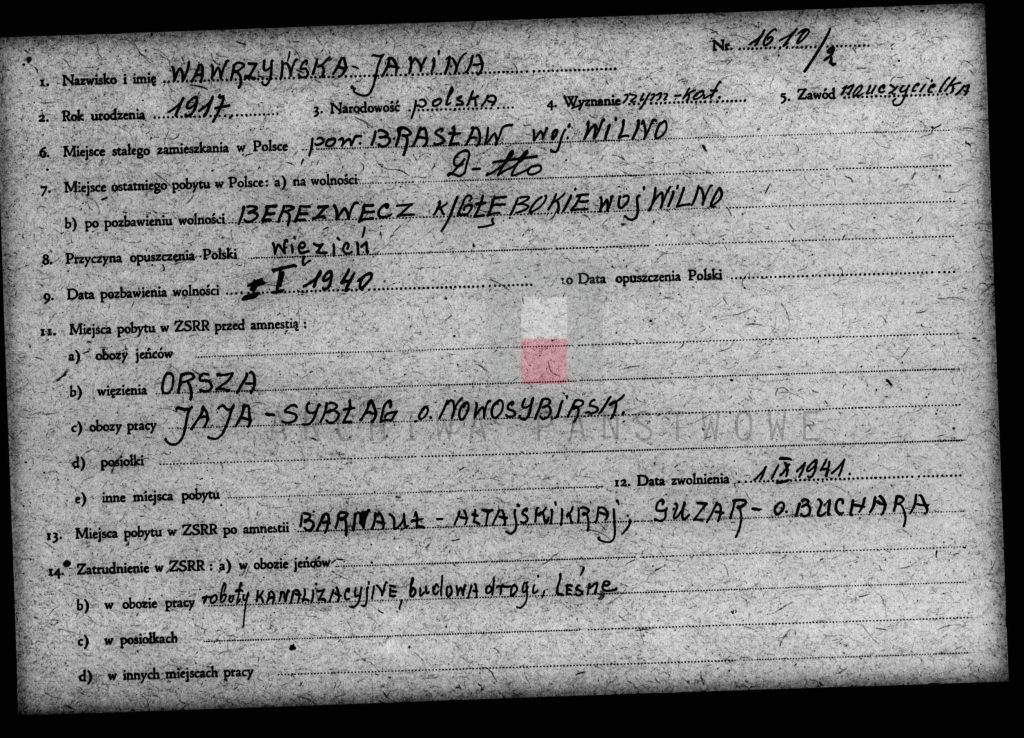 Nr. 1610/2
1. Nazwisko i imię WAWRZYŃSKA-JANINA
2. Rok urodzenia 1917. 3. Narodowość polska 4. Wyznanie rzym-kat. 5. Zawód nauczycielka
6. Miejsce stałego zamieszkania w Polsce pow. BRASŁAW woj WILNO
7. Miejsce ostatniego pobytu w Polsce: a) na wolności D-tto
b) po pozbawieniu wolności BEREZWECZ K/GŁĘBOKIE woj WILNO
8. Przyczyna opuszczenia Polski więzień
9. Data pozbawienia wolności I 1940 10 Data opuszczenia Polski
11. Miejsca pobytu w ZSRR przed amnestią :
a) obozy jeńców
b) więzienia ORSZA
c) obozy pracy JAJA-SYBŁAG o. NOWOSYBIRSK.
ARCHIWA PAŃSTWOWE
d) posiołki
e) inne miejsca pobytu 12. Data zwolnienia 1 IX 1941.
13. Miejsca pobytu w ZSRR po amnestii BARNAUŁ - AŁTAJSKI KRAJ, GUZAR - o. BUCHARA
14. Zatrudnienie w ZSRR : a) w obozie jeńców
b) w obozie pracy roboty KANALIZACYJNE, budowa drogi, LEŚNE
c) w posiołkach
d) w innych miejscach pracy